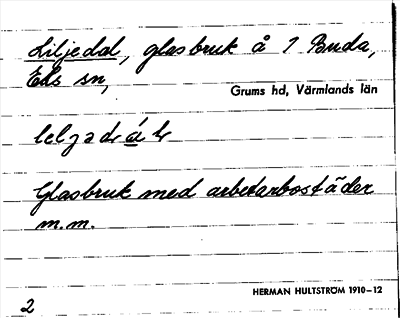 Liljedal, glasbruk å 1 Buda,
Eds sn,
Grums hd, Värmlands län
Glasbruk med arbetarbostäder
m.m.
HERMAN HULTSTRÖM 1910–12
2